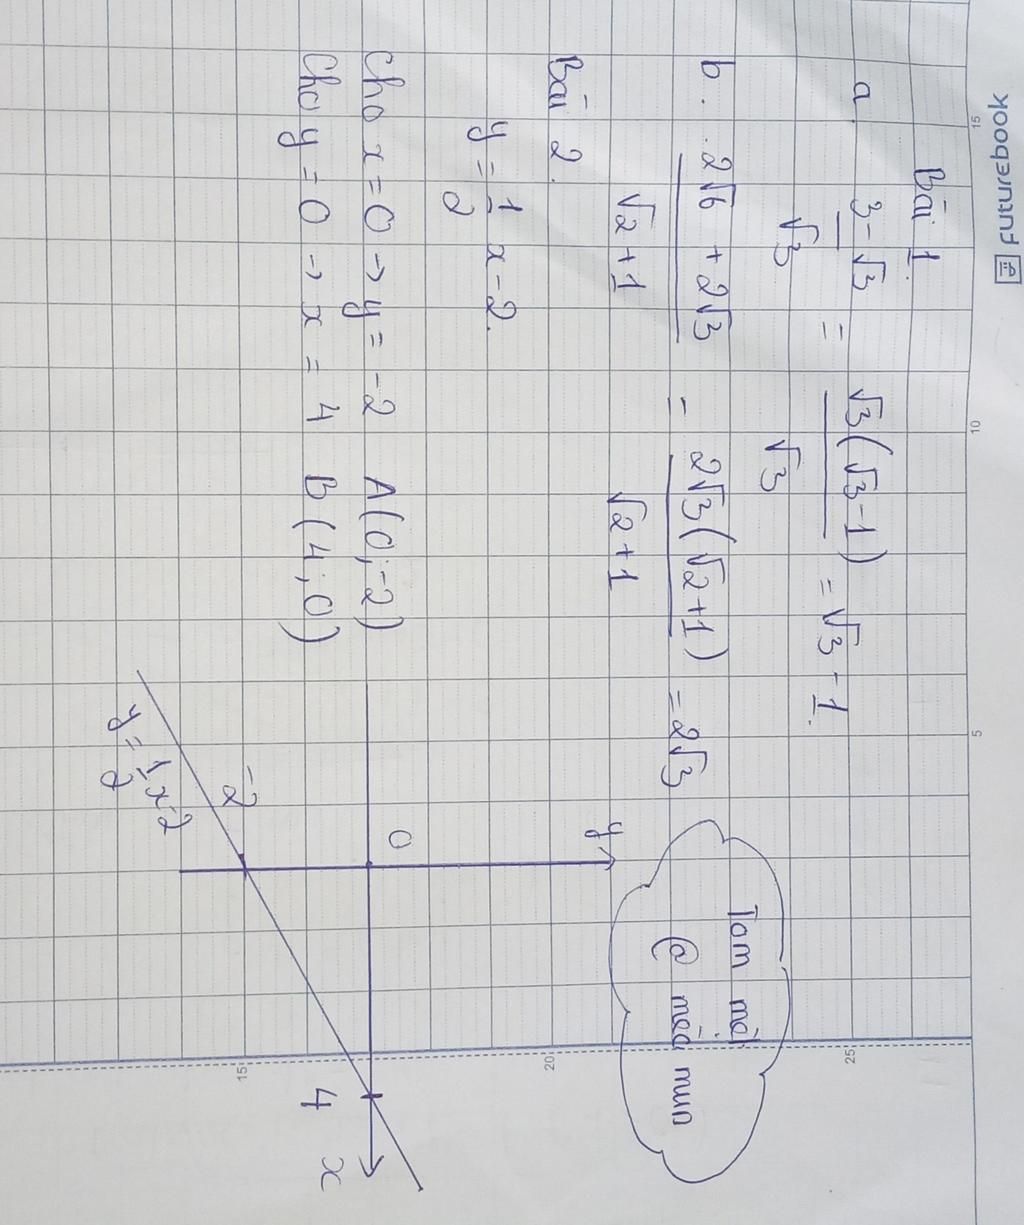 FUTUREBOOK
15 10 5
Bài 1.
a. 3-√3/√3 = √3(√3-1)/√3 = √3-1.
b. 2√6 + 2√3/√2+1 = 2√3(√2+1)/√2+1 = 2√3
Bài 2.
y = 1/2 x - 2.
Cho x = 0 → y = -2 A(0;-2)
Cho y = 0 → x = 4 B(4;0)
y
0
-2
4
x
y = 1/2 x-2
@ mều mun
25
20
15